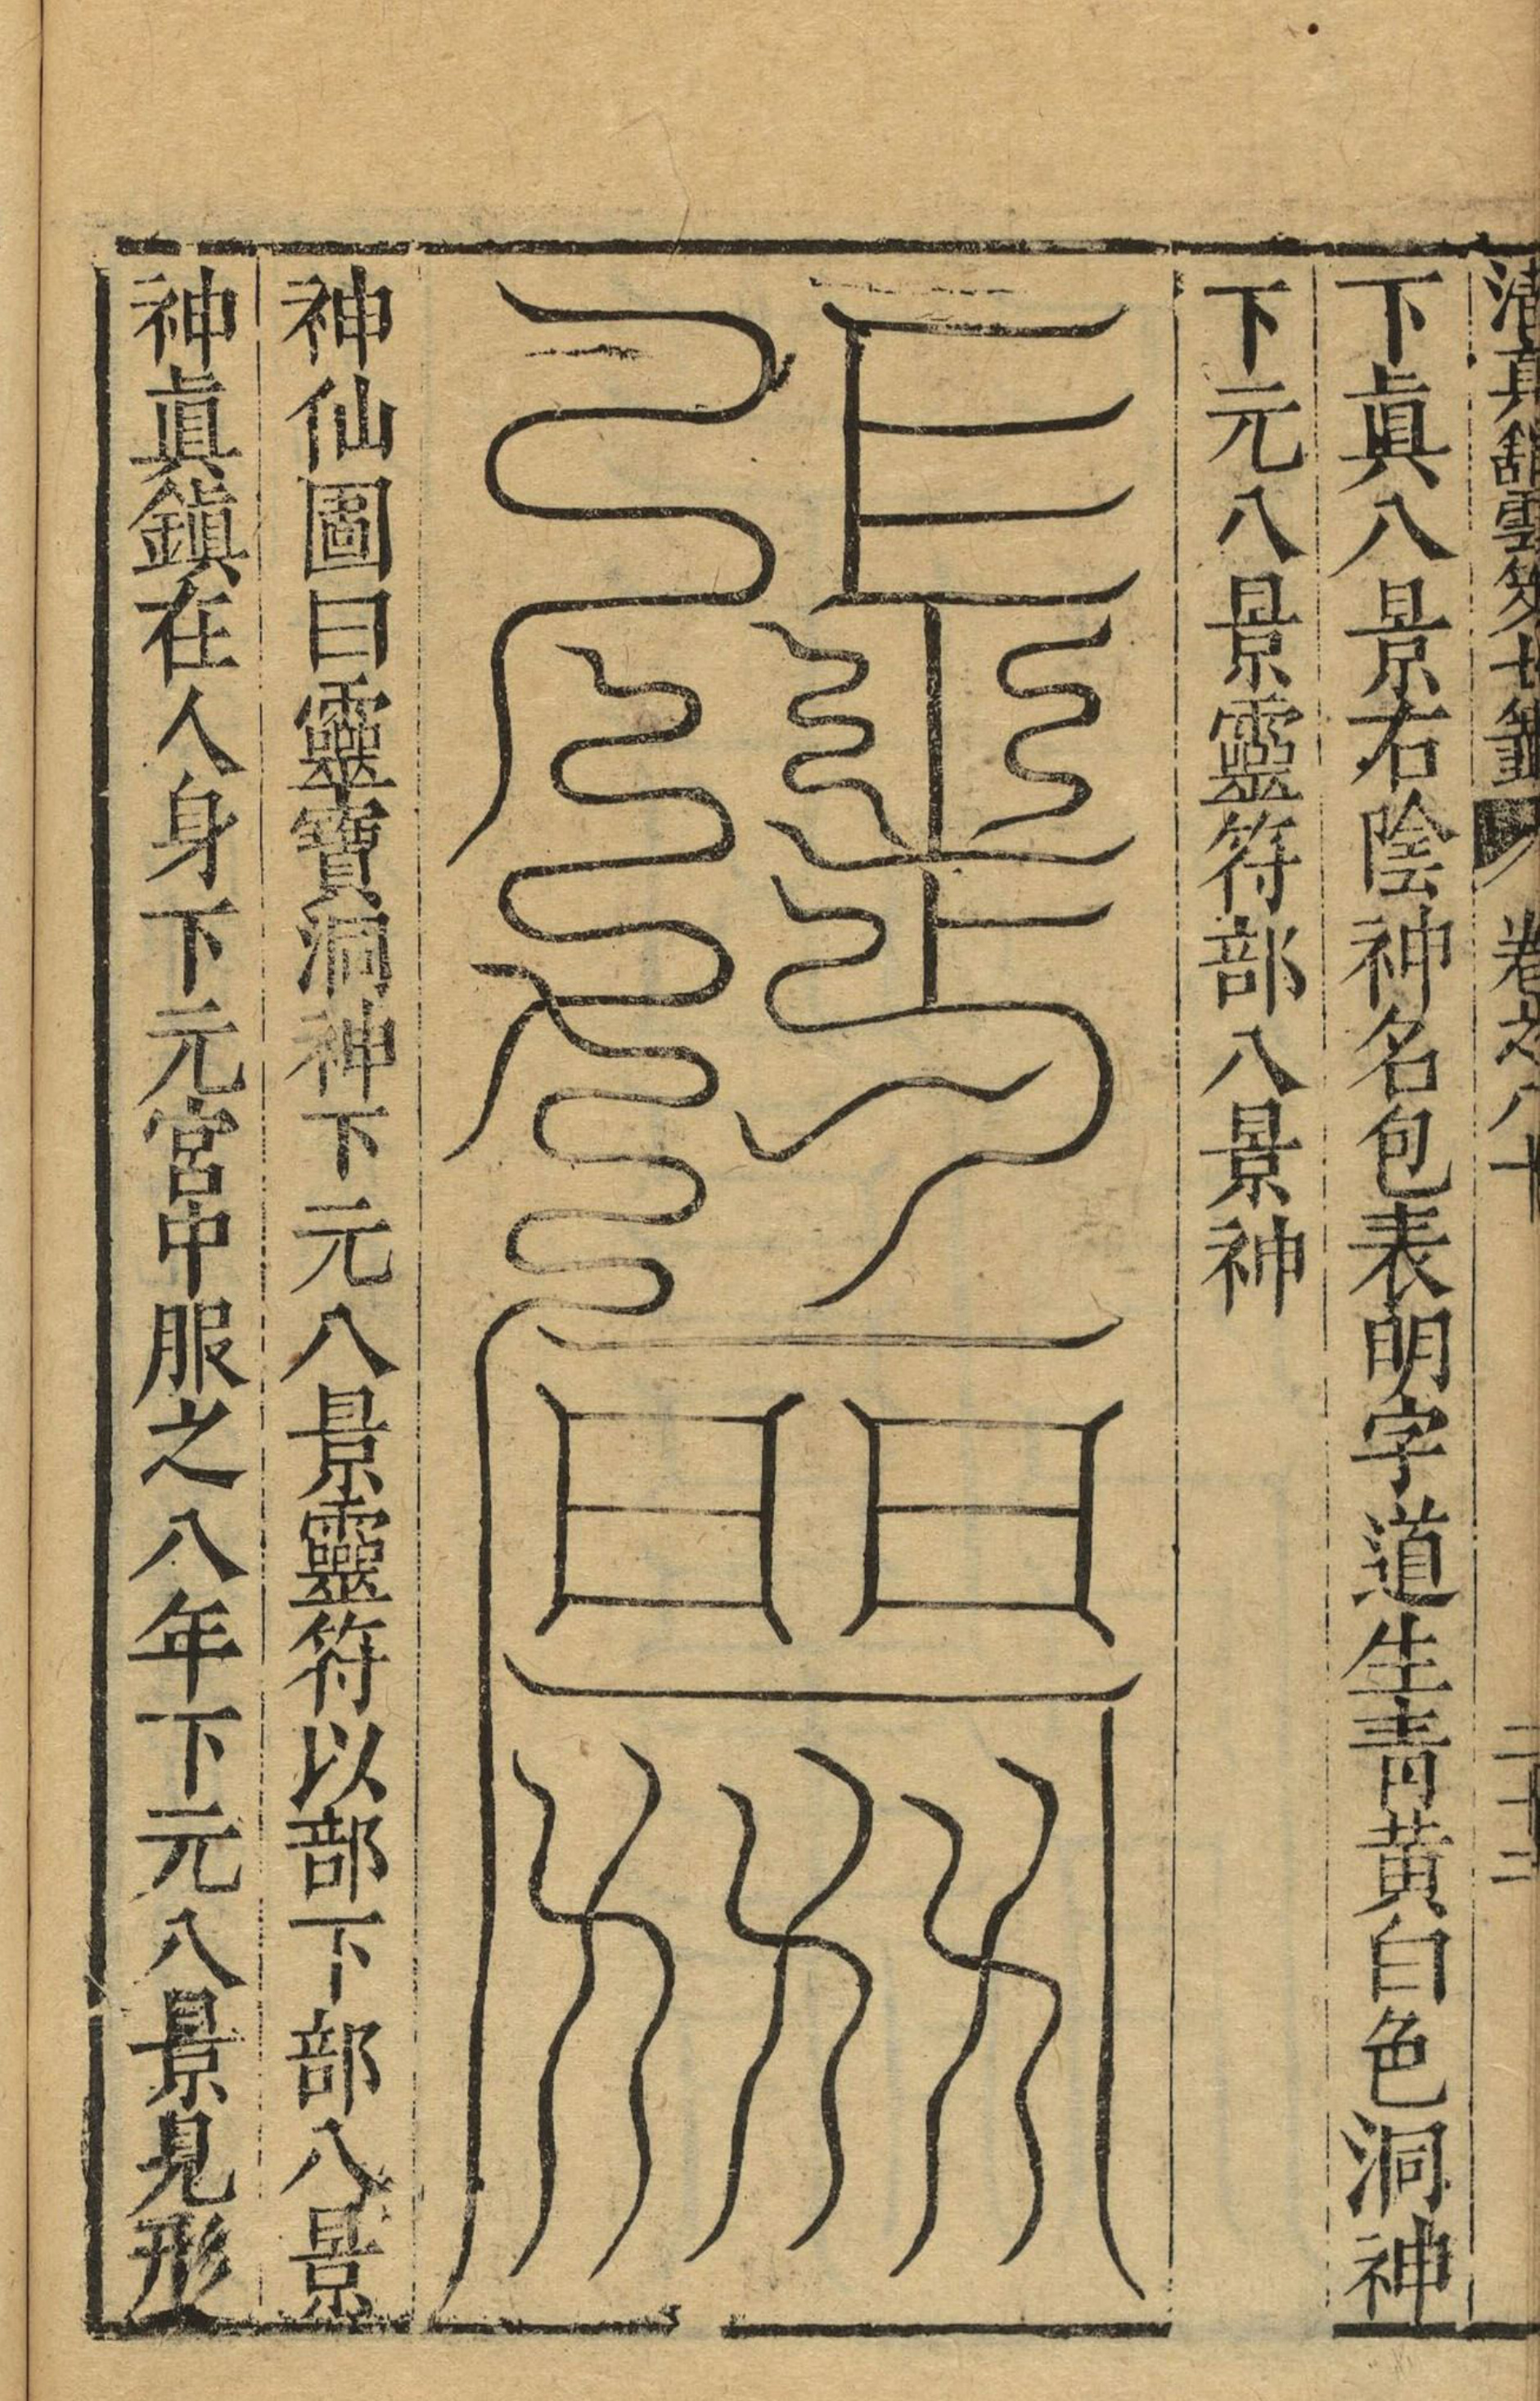 清真館雲笈七籤 卷之八十 二十三
下眞八景右陰神名包表明字道生青黃白色洞神
下元八景靈符部八景神
神仙圖曰靈寶洞神下元八景靈符以部下部八景
神眞鎮在人身下元宮中服之八年下元八景見形